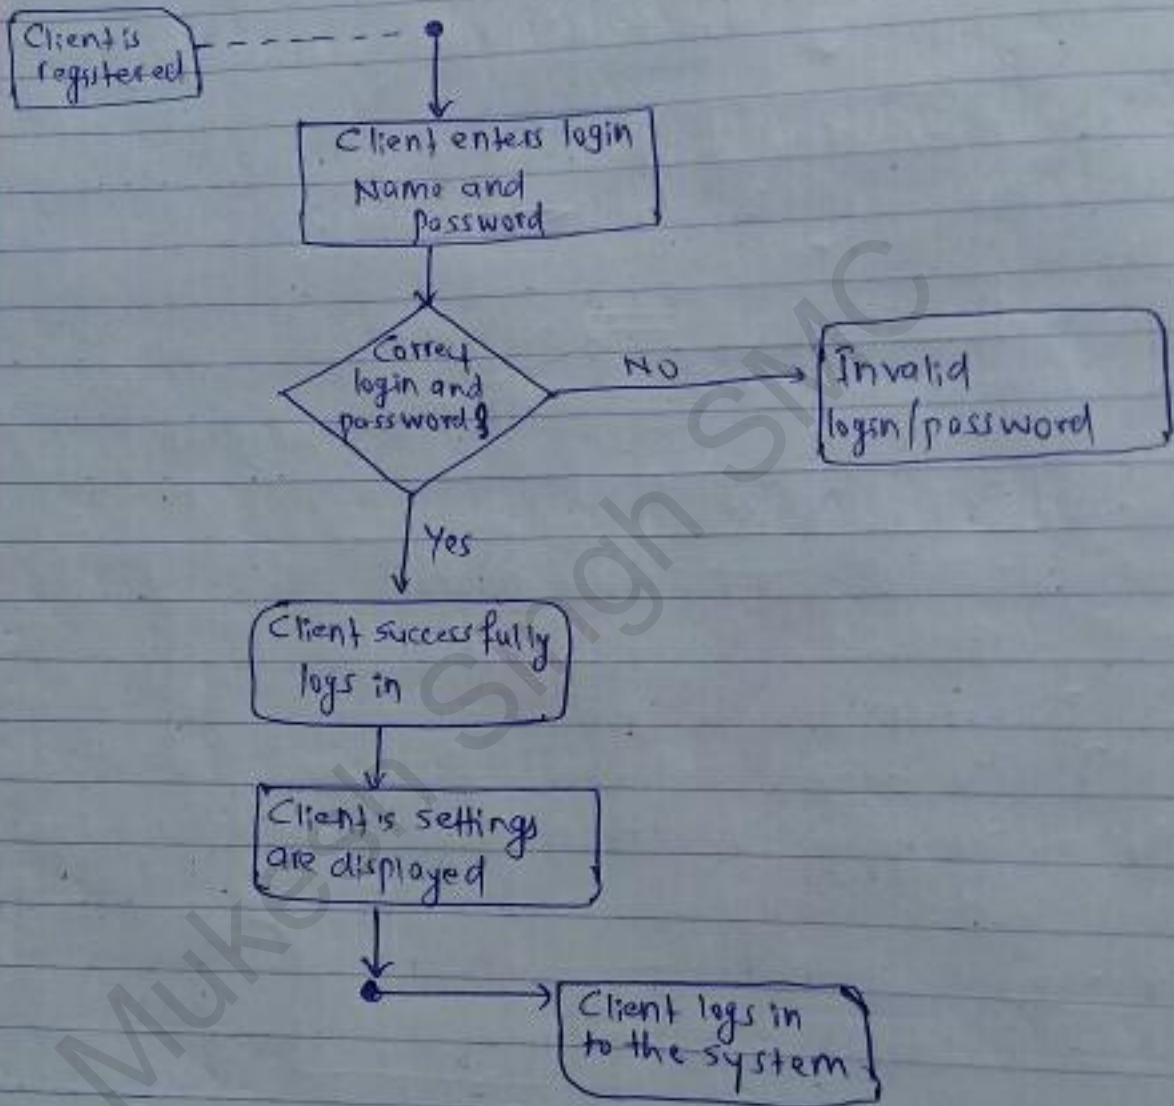 Client is
registered
Client enters login
Name and
password
Correct
login and
password?
NO
Invalid
login/password
Yes
Client successfully
logs in
Client's settings
are displayed
Client logs in
to the system
Mukesh Singh SMC